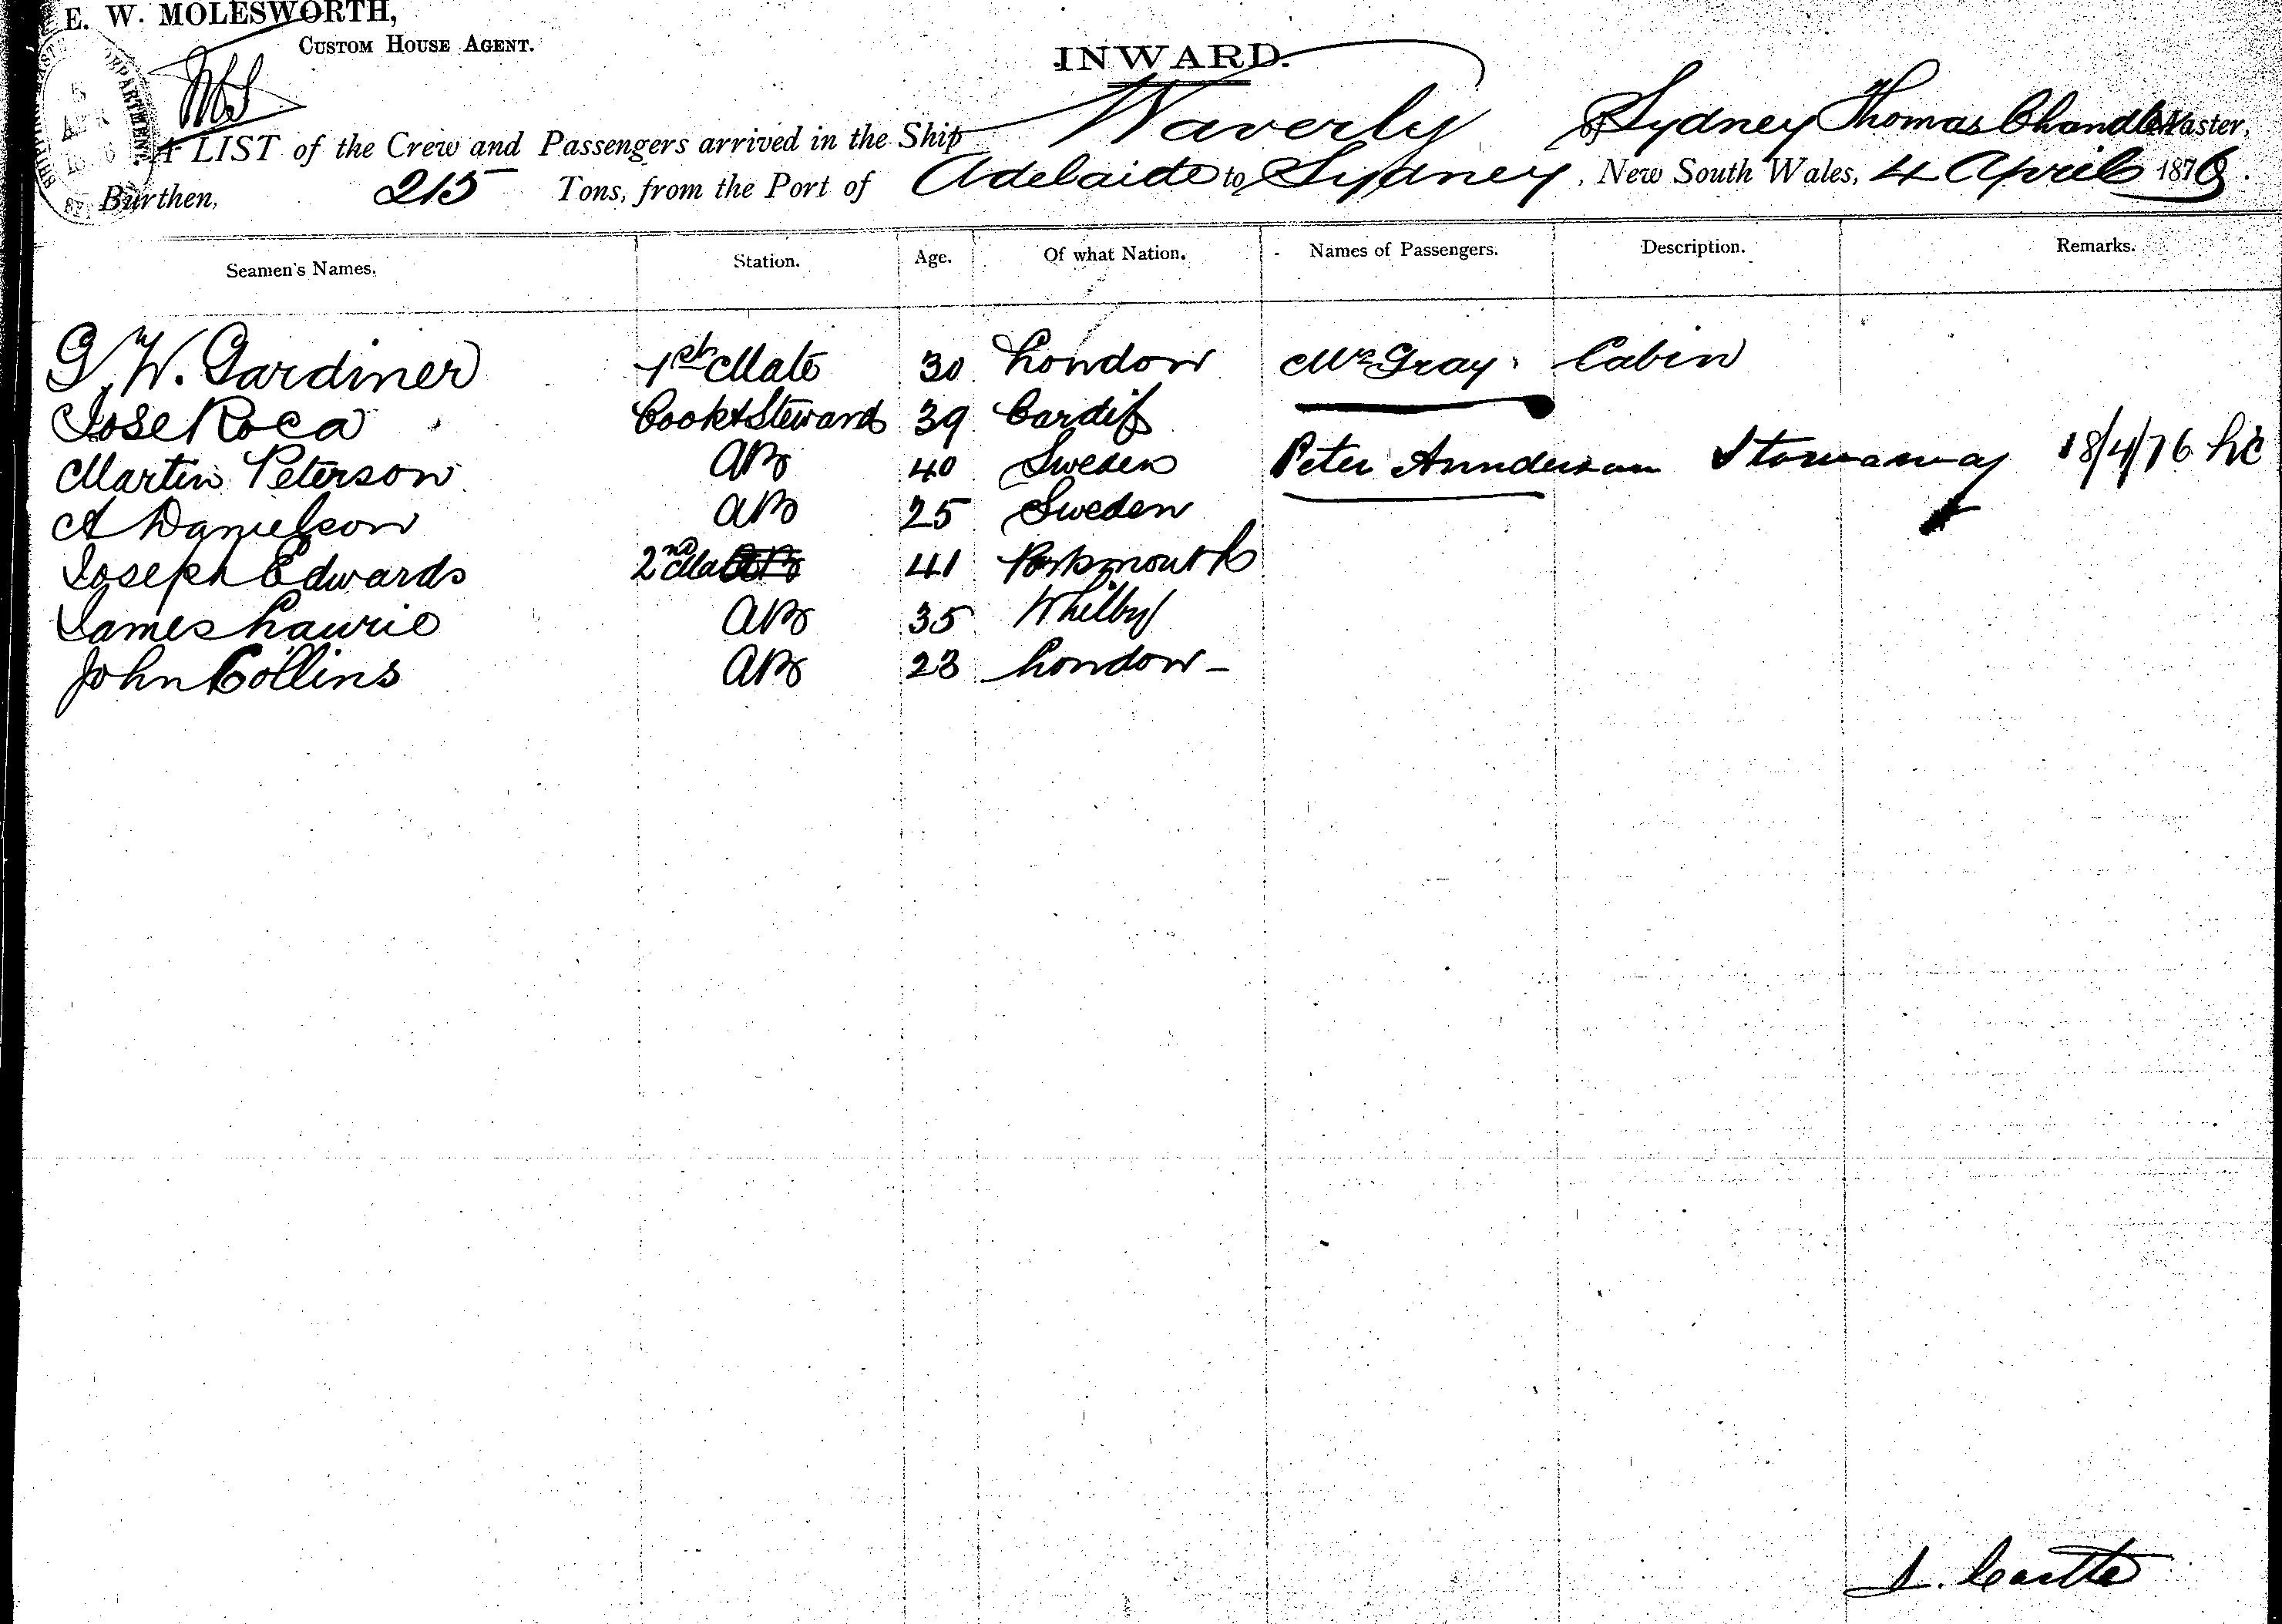 E. W. MOLESWORTH,
CUSTOM HOUSE AGENT.
INWARD.
A LIST of the Crew and Passengers arrived in the Ship Waverly of Sydney Thomas Chandler Master,
Burthen, 215 Tons, from the Port of Adelaide to Sydney, New South Wales, 4 April 1876.
Seamen's Names. Station. Age. Of what Nation. Names of Passengers. Description. Remarks.
G. W. Gardiner 1st Mate 30 London Mrs Gray Cabin
Jose Roca Cook & Steward 39 Cardiff
Martin Peterson AB 40 Sweden Peter Annderson Stowaway 18/4/76
A Danielson AB 25 Sweden
Joseph Edwards 2nd Mate AB 41 Portsmouth
James Lawrie AB 35 Whitby
John Collins AB 23 London